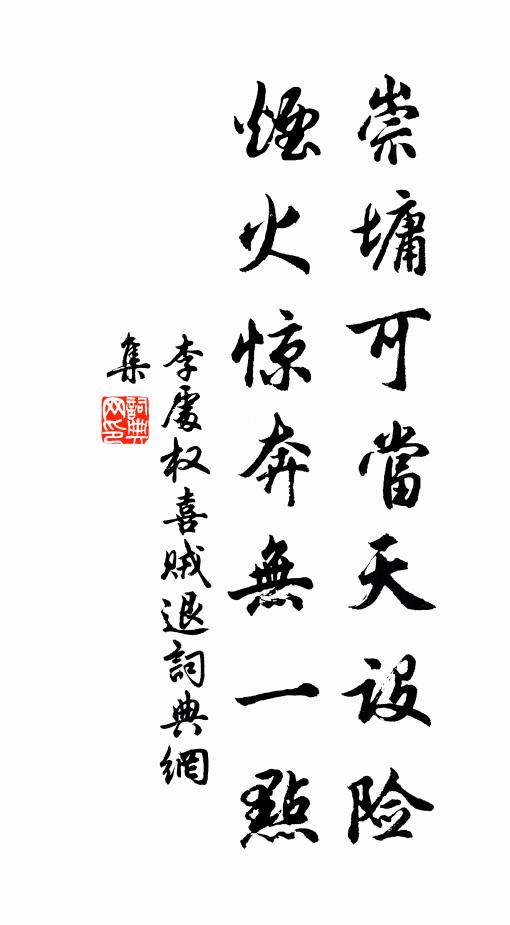 崇墉可當天设险
煙火惊奔無一點
李處权喜贼退詞典網
集
詞典网印